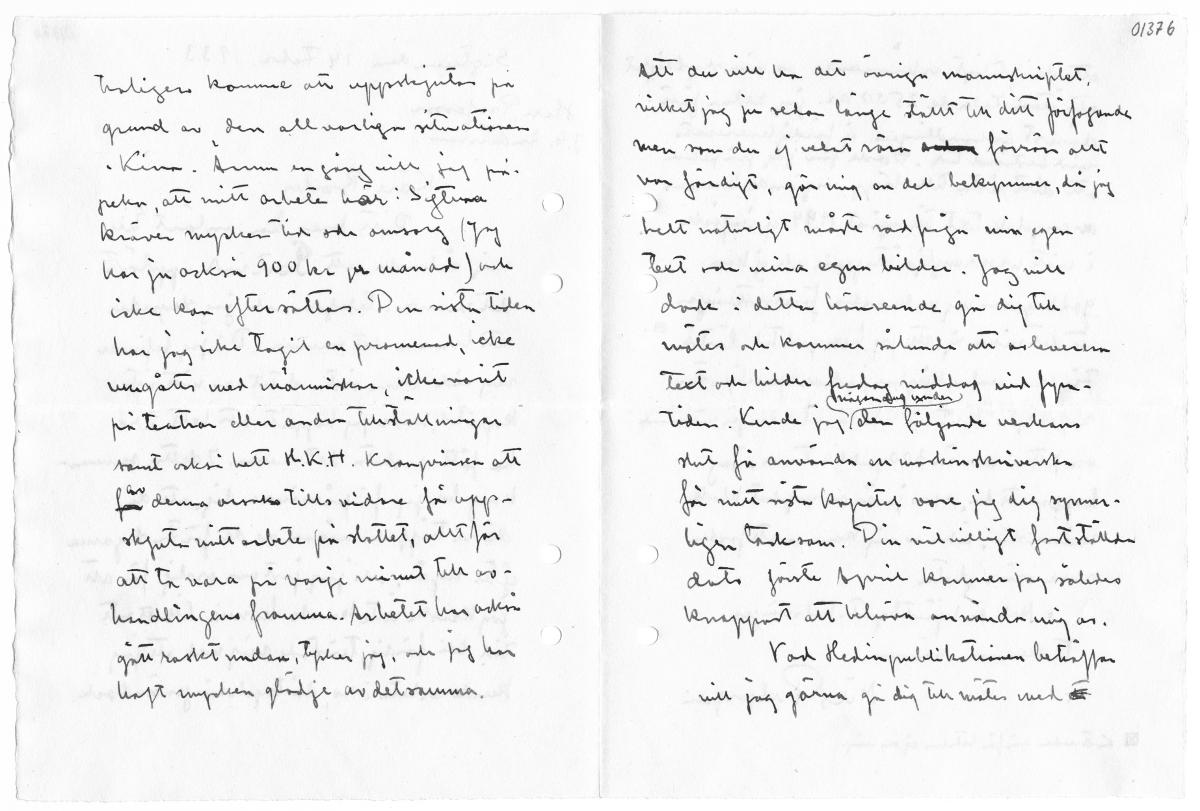 01376
troligen komme att uppskjutas på
grund av den allvarliga situationen
i Kina. Ännu en gång vill jag på-
peka, att mitt arbete här i Sigtuna
kräver mycken tid och omsorg (Jag
har ju också 900 kr pr månad) och
icke kan eftersättas. Den sista tiden
har jag icke tagit en promenad, icke
umgåtts med människor, icke varit
på teatrar eller andra tillställningar
samt också bett H.K.H. Kronprinsen att
av denna orsak tills vidare få upp-
skjuta mitt arbete på slottet, allt för
att ta vara på varje minut till av-
handlingens fromma. Arbetet har också
gått raskt undan, tycker jag, och jag har
haft mycken glädje av detsamma.
Att du vill ha det övriga manuskriptet,
vilket jag ju redan länge ställt till ditt förfogande
men som du ej velat röra förrän allt
var färdigt, gör mig en del bekymmer, då jag
helt naturligt måste rådfråga min egen
text och mina egna bilder. Jag vill
dock i detta hänseende gå dig till
mötes och kommer sålunda att avleverera
text och bilder fredag middag vid fyra-
tiden. Kunde jag någon dag under den följande veckans
slut få använda en maskinskriverska
för mitt sista kapitel vore jag dig synner-
ligen tacksam. Din välvilligt fastställda
dato förste April kommer jag således
knappast att behöva använda mig av.
Vad Hedinpublikationen beträffar
vill jag gärna gå dig till mötes med